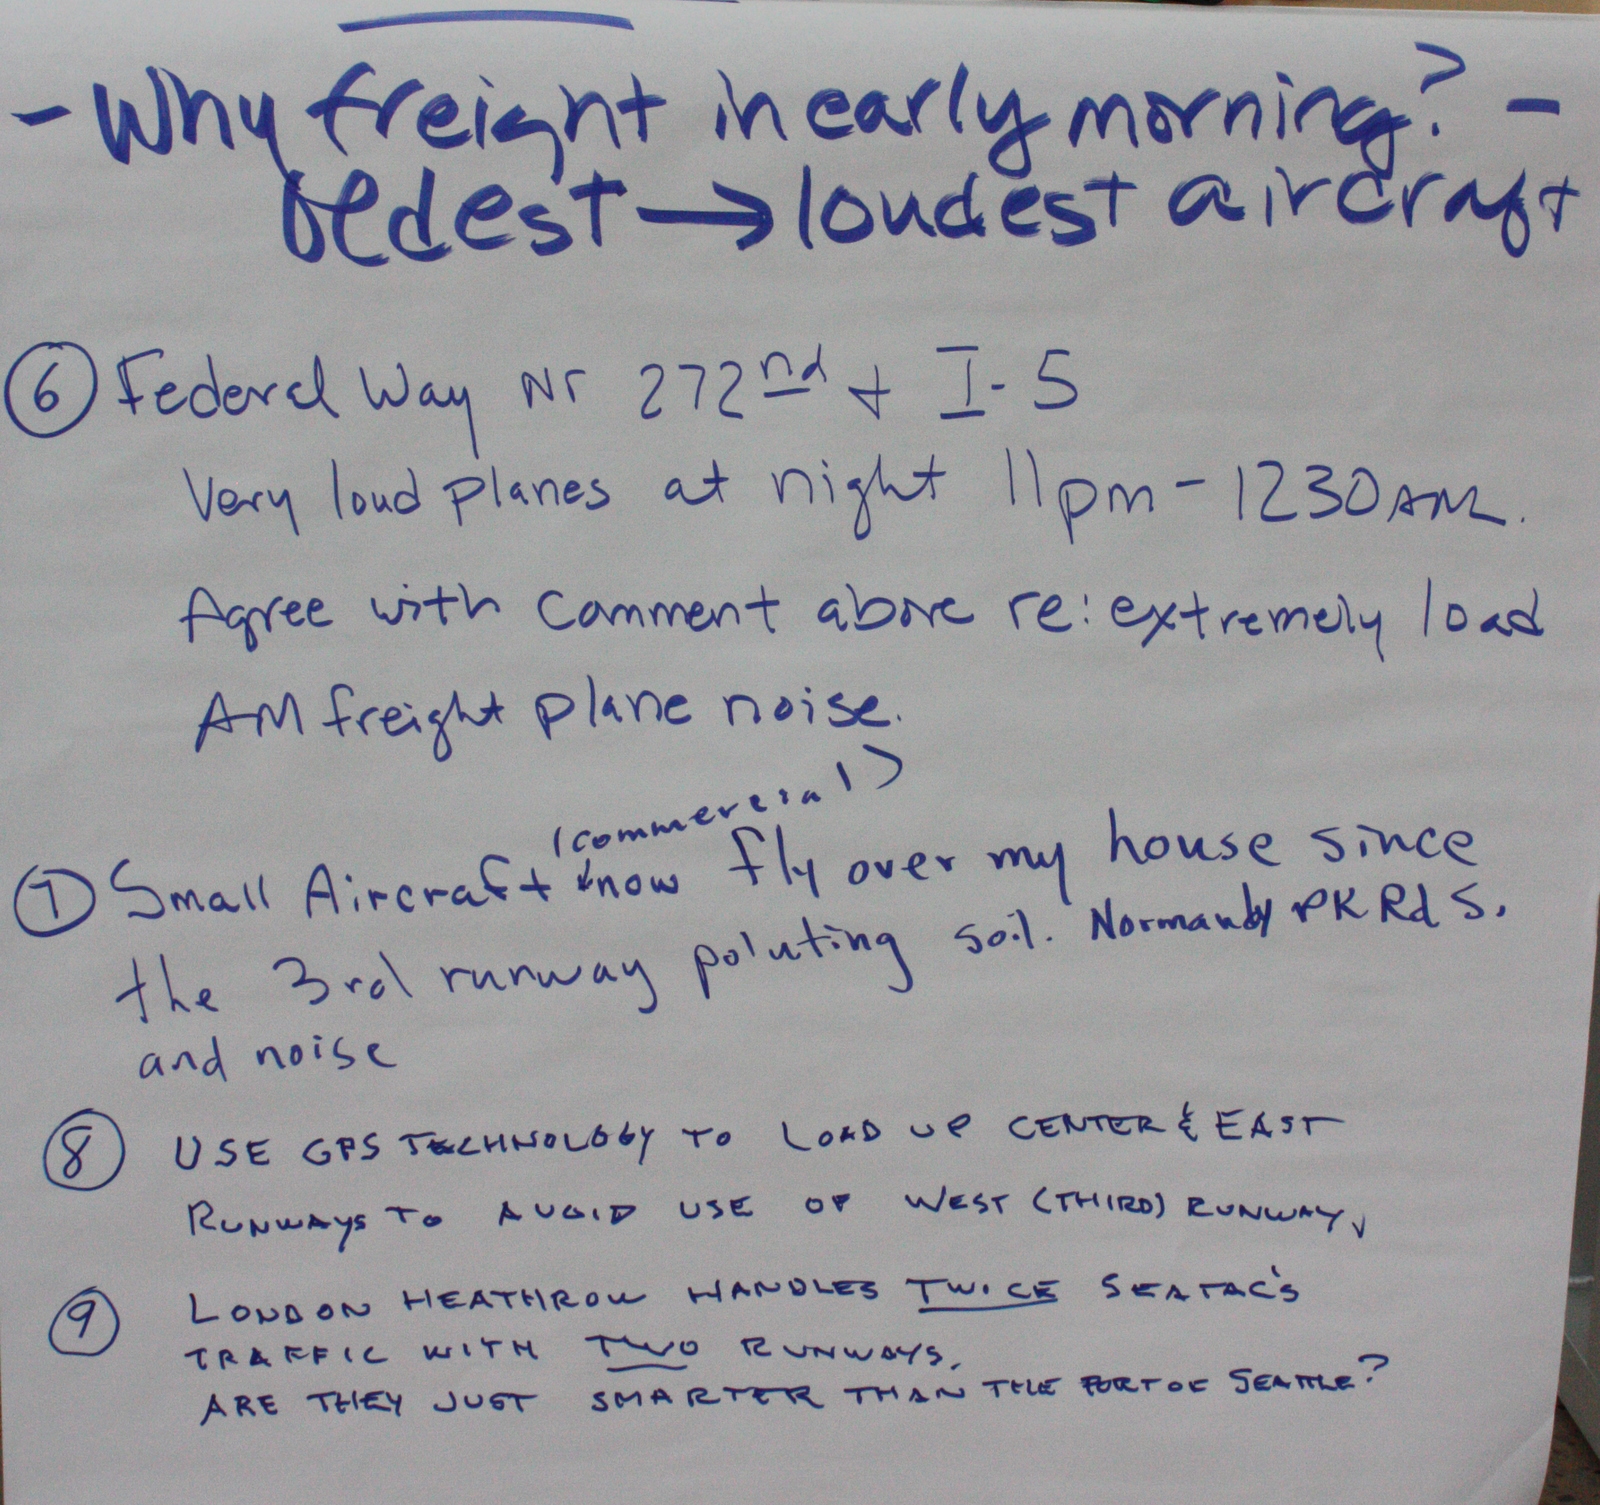 - Why freight in early morning? -
oldest → loudest aircraft
⑥ Federal Way Nr 272nd + I-5
Very loud planes at night 11pm - 1230AM.
Agree with comment above re: extremely load
AM freight plane noise.
(commercial)
⑦ Small Aircraft now fly over my house since
the 3rd runway poluting soil. Normandy PK Rd S.
and noise
⑧ USE GPS TECHNOLOGY TO LOAD UP CENTER & EAST
RUNWAYS TO AVOID USE OF WEST (THIRD) RUNWAY.
⑨ LONDON HEATHROW HANDLES TWICE SEATAC'S
TRAFFIC WITH TWO RUNWAYS.
ARE THEY JUST SMARTER THAN THE PORT OF SEATTLE?